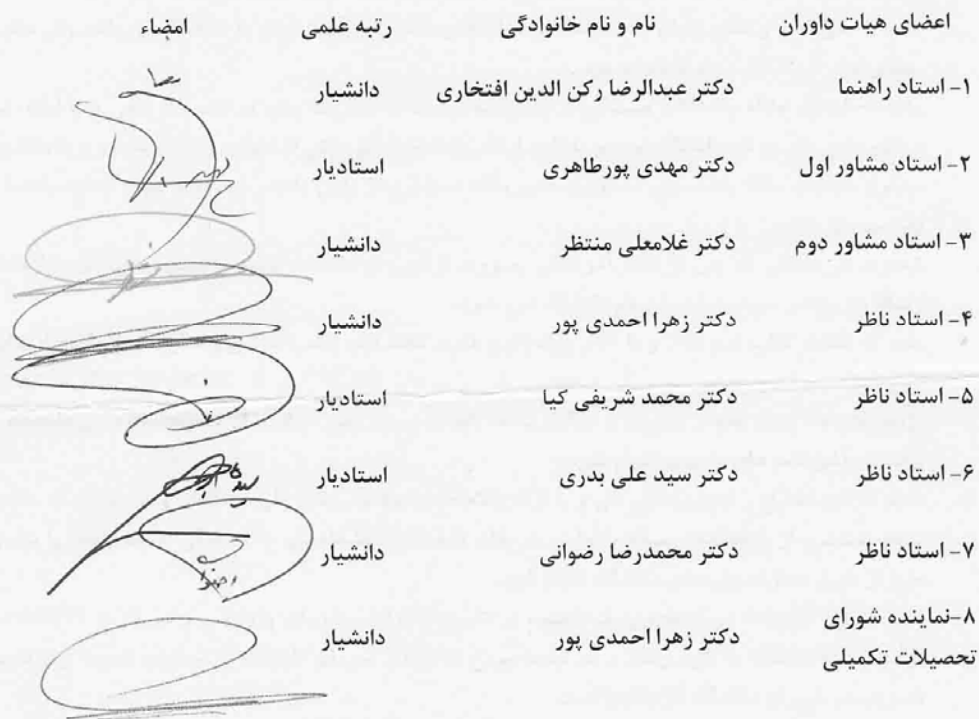 اعضای هیات داوران نام و نام خانوادگی رتبه علمی امضاء
۱- استاد راهنما دکتر عبدالرضا رکن الدین افتخاری دانشیار
۲- استاد مشاور اول دکتر مهدی پورطاهری استادیار
۳- استاد مشاور دوم دکتر غلامعلی منتظر دانشیار
۴- استاد ناظر دکتر زهرا احمدی پور دانشیار
۵- استاد ناظر دکتر محمد شریفی کیا استادیار
۶- استاد ناظر دکتر سید علی بدری استادیار
۷- استاد ناظر دکتر محمدرضا رضوانی دانشیار
۸-نماینده شورای تحصیلات تکمیلی دکتر زهرا احمدی پور دانشیار